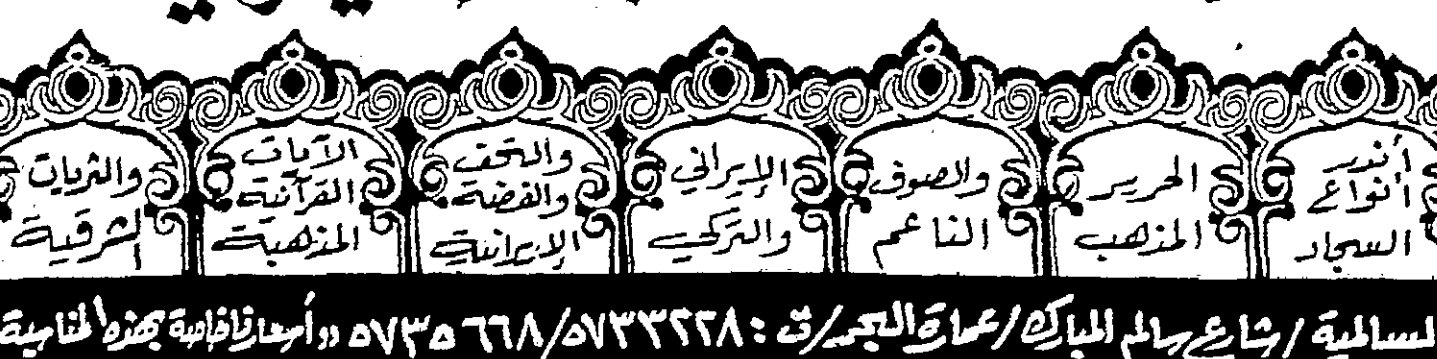 أندر
أنواع
السجاد
الحرير
المذهب
والصوف
الناعم
الإيراني
والتركي
والتحف
والفضة
الإيرانية
الآيات
القرآنية
المذهبة
والثريات
الشرقية
السالمية / شارع سالم المبارك / عمارة البحر / ت : ٥٧٣٣٢٢٨ / ٥٧٣٥٦٦٨ وأسعارنا خاصة بهذه المناسبة